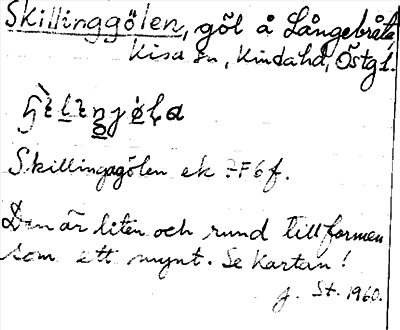 Skillinggölen, göl å Långebråta,
Kisa sn, Kinda hd, Östgl.
Skillingagölen ek 7F6f.
Den är liten och rund till formen
som ett mynt. Se Kartan!
J. St. 1960.